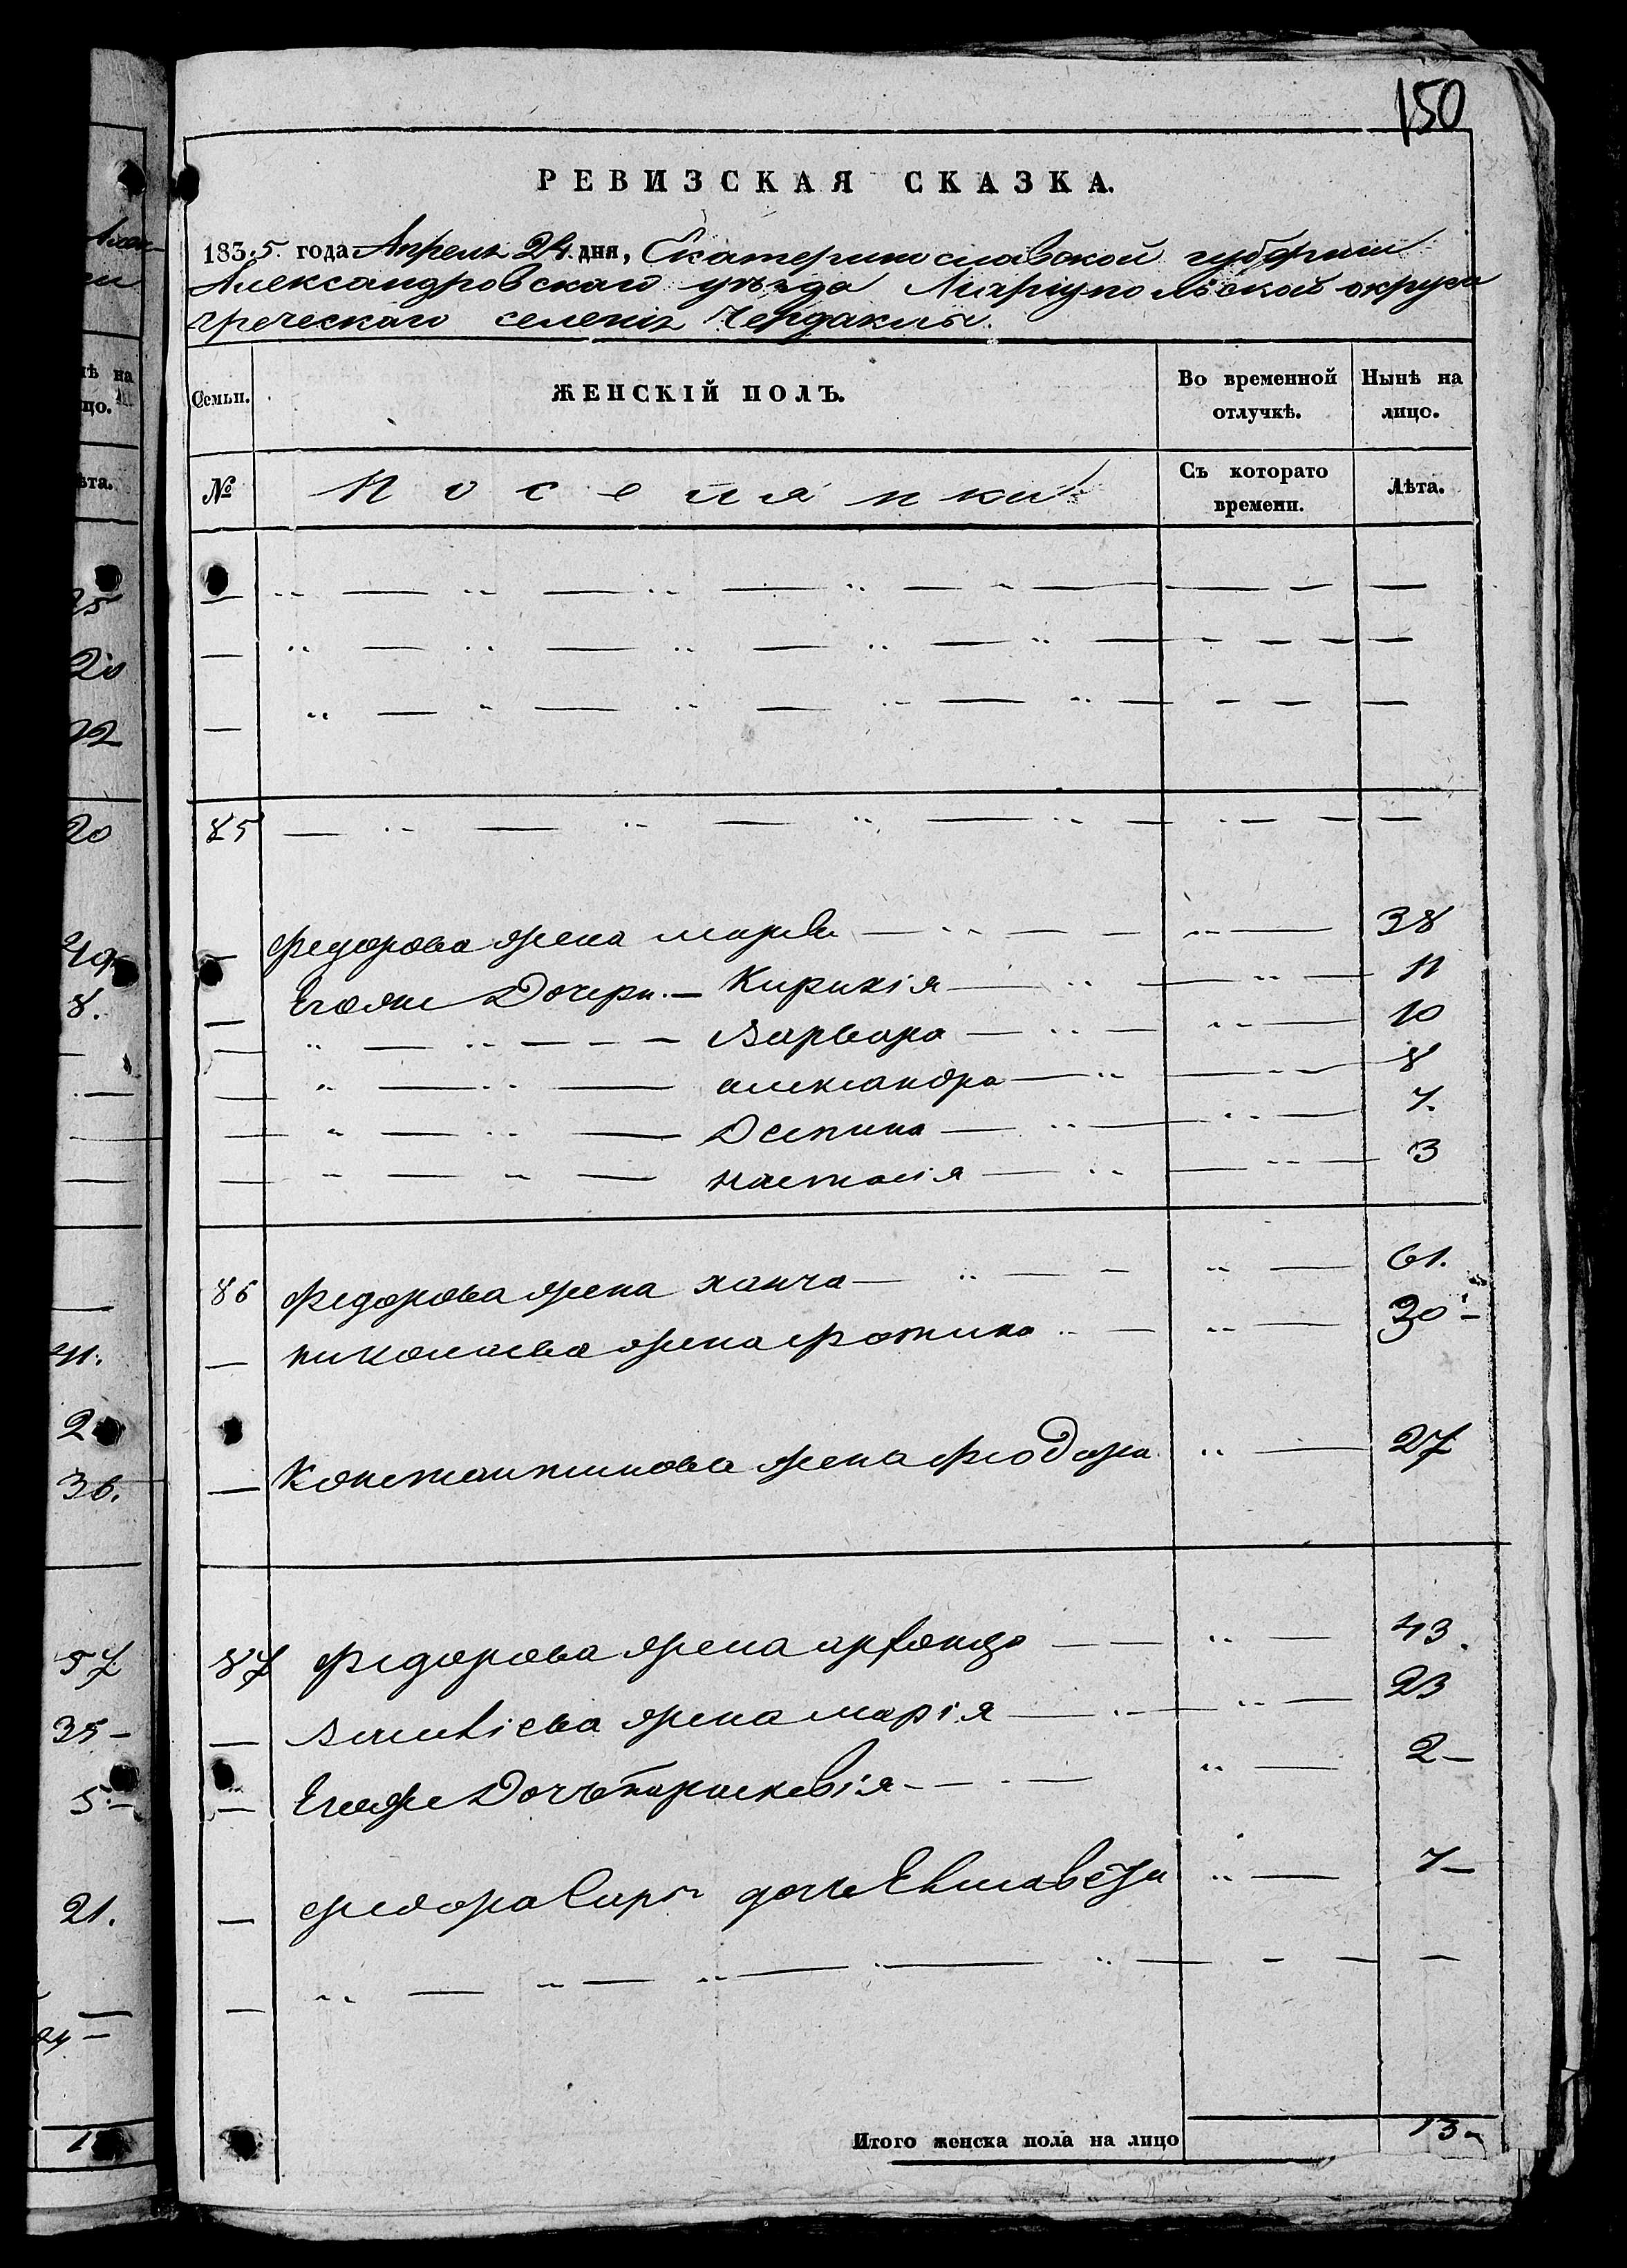 150
РЕВИЗСКАЯ СКАЗКА.
1835 года Апреля 24 дня, Екатеринославской губернии
Александровскаго уѣзда Маріупольской округи
греческаго селенія Чердаклы.
Семьи. ЖЕНСКІЙ ПОЛЪ. Во временной отлучкѣ. Нынѣ на лицо.
№ Поселянки Съ которато времени. Лѣта.
85
Федорова жена 38
Егоже Дочери. Кирикія 11
Варвара 10
александра 8
Деспина 7.
настасія 3
86 Федорова жена ханча 61.
николаева жена фотина 30
Константинова жена Феодора 27
87 Федорова жена 43.
жена марія 23
Егоже Дочь параскевія 2
дочь Елисавета 7
Итого женска пола на лицо 13